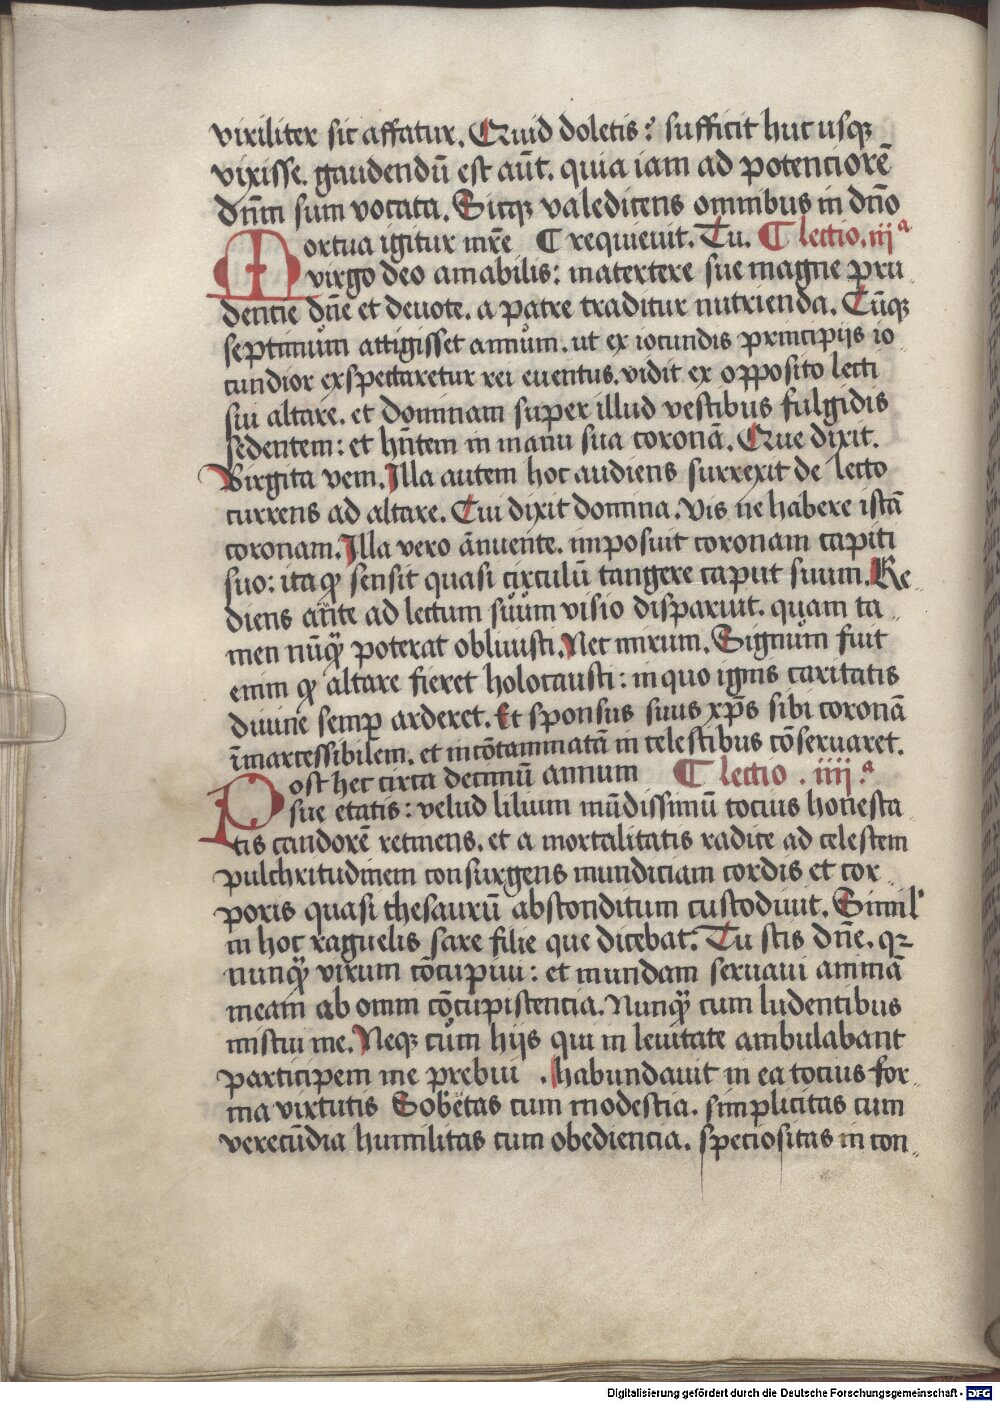 viriliter sic affatur. Quid doletis? sufficit huc usqꝫ
vixisse. gaudendū est aūt. quia iam ad potenciorē
dnm̄ sum vocata. Sicqꝫ valedicens omnibus in dn̄o
ortua igitur mr̄e ℂ requieuit. Tu. ℂ lectio. iijᵃ
M virgo deo amabilis: matertere sue magne pru
dencie dn̄e et deuote. a patre traditur nutrienda. Cūqꝫ
septimum attigisset annum. ut ex iocundis principijs io
cundior exspectaretur rei euentus. vidit ex opposito lecti
sui altare. et dominam super illud vestibus fulgidis
sedentem: et hn̄tem in manu sua coronā. Que dixit.
Birgita veni. Illa autem hoc audiens surrexit de lecto
currens ad altare. Cui dixit domina. Vis ne habere istā
coronam. Illa vero ānuente. imposuit coronam capiti
suo: ita qꝫ sensit quasi circulū tangere caput suum. Re
diens aūte ad lectum suum visio disparuit. quam ta
men nūqꝫ poterat obliuisci. Nec mirum. Signum fuit
enim qꝫ altare fieret holocausti: in quo ignis caritatis
diuine semꝑ arderet. Et sponsus suus xp̄s sibi coronā
īmarcessibilem. et incōtaminatā in celestibus cōseruaret.
ost hec circa decimū annum ℂ lectio. iiij.ᵃ
P sue etatis: velud lilium mūdissimū tocius honesta
tis candorē retinens. et a mortalitatis radice ad celestem
pulchritudinem consurgens mundiciam cordis et cor
poris quasi thesaurū absconditum custodiuit. Simil'
in hoc raguelis sare filie que dicebat. Tu scis dn̄e. qꝛ
nunqꝫ virum cōcupiui: et mundam seruaui animā
meam ab omni cōcupiscencia. Nunqꝫ cum ludentibus
miscui me. Neqꝫ cum hijs qui in leuitate ambulabant
participem me prebui. habundauit in ea tocius for
ma virtutis Sobrietas cum modestia. simplicitas cum
verecūdia humilitas cum obediencia. speciositas in con
Digitalisierung gefördert durch die Deutsche Forschungsgemeinschaft - DFG